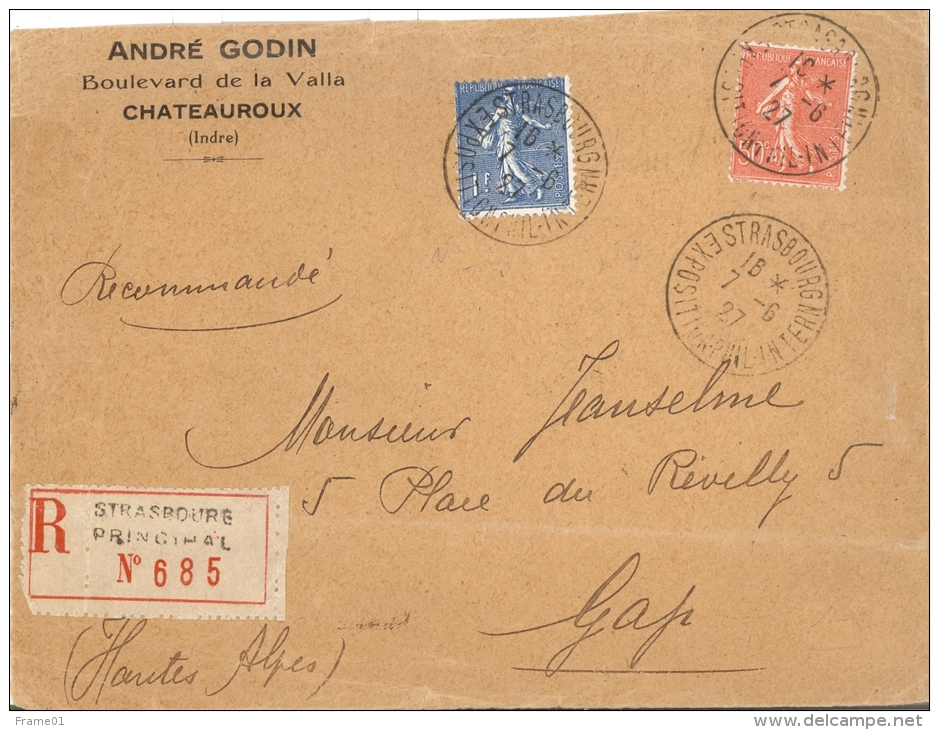 ANDRÉ GODIN
Boulevard de la Valla
CHATEAUROUX
(Indre)
REPUBLIQUE FRANÇAISE
1F
POSTES
STRASBOURG
EXPOSITION PHIL-INTERN
16 *
7 -6
27
REPUBLIQUE FRANÇAISE
50
16 *
7 -6
27
STRASBOURG
EXPOSITION-PHIL-INTERN
16 *
7 -6
27
Recommandé
Monsieur Jeanselme
5 Place du Révelly 5
Gap
(Hautes Alpes)
R
STRASBOURG
PRINCIPAL
N° 685
Frame01
delcampe.net